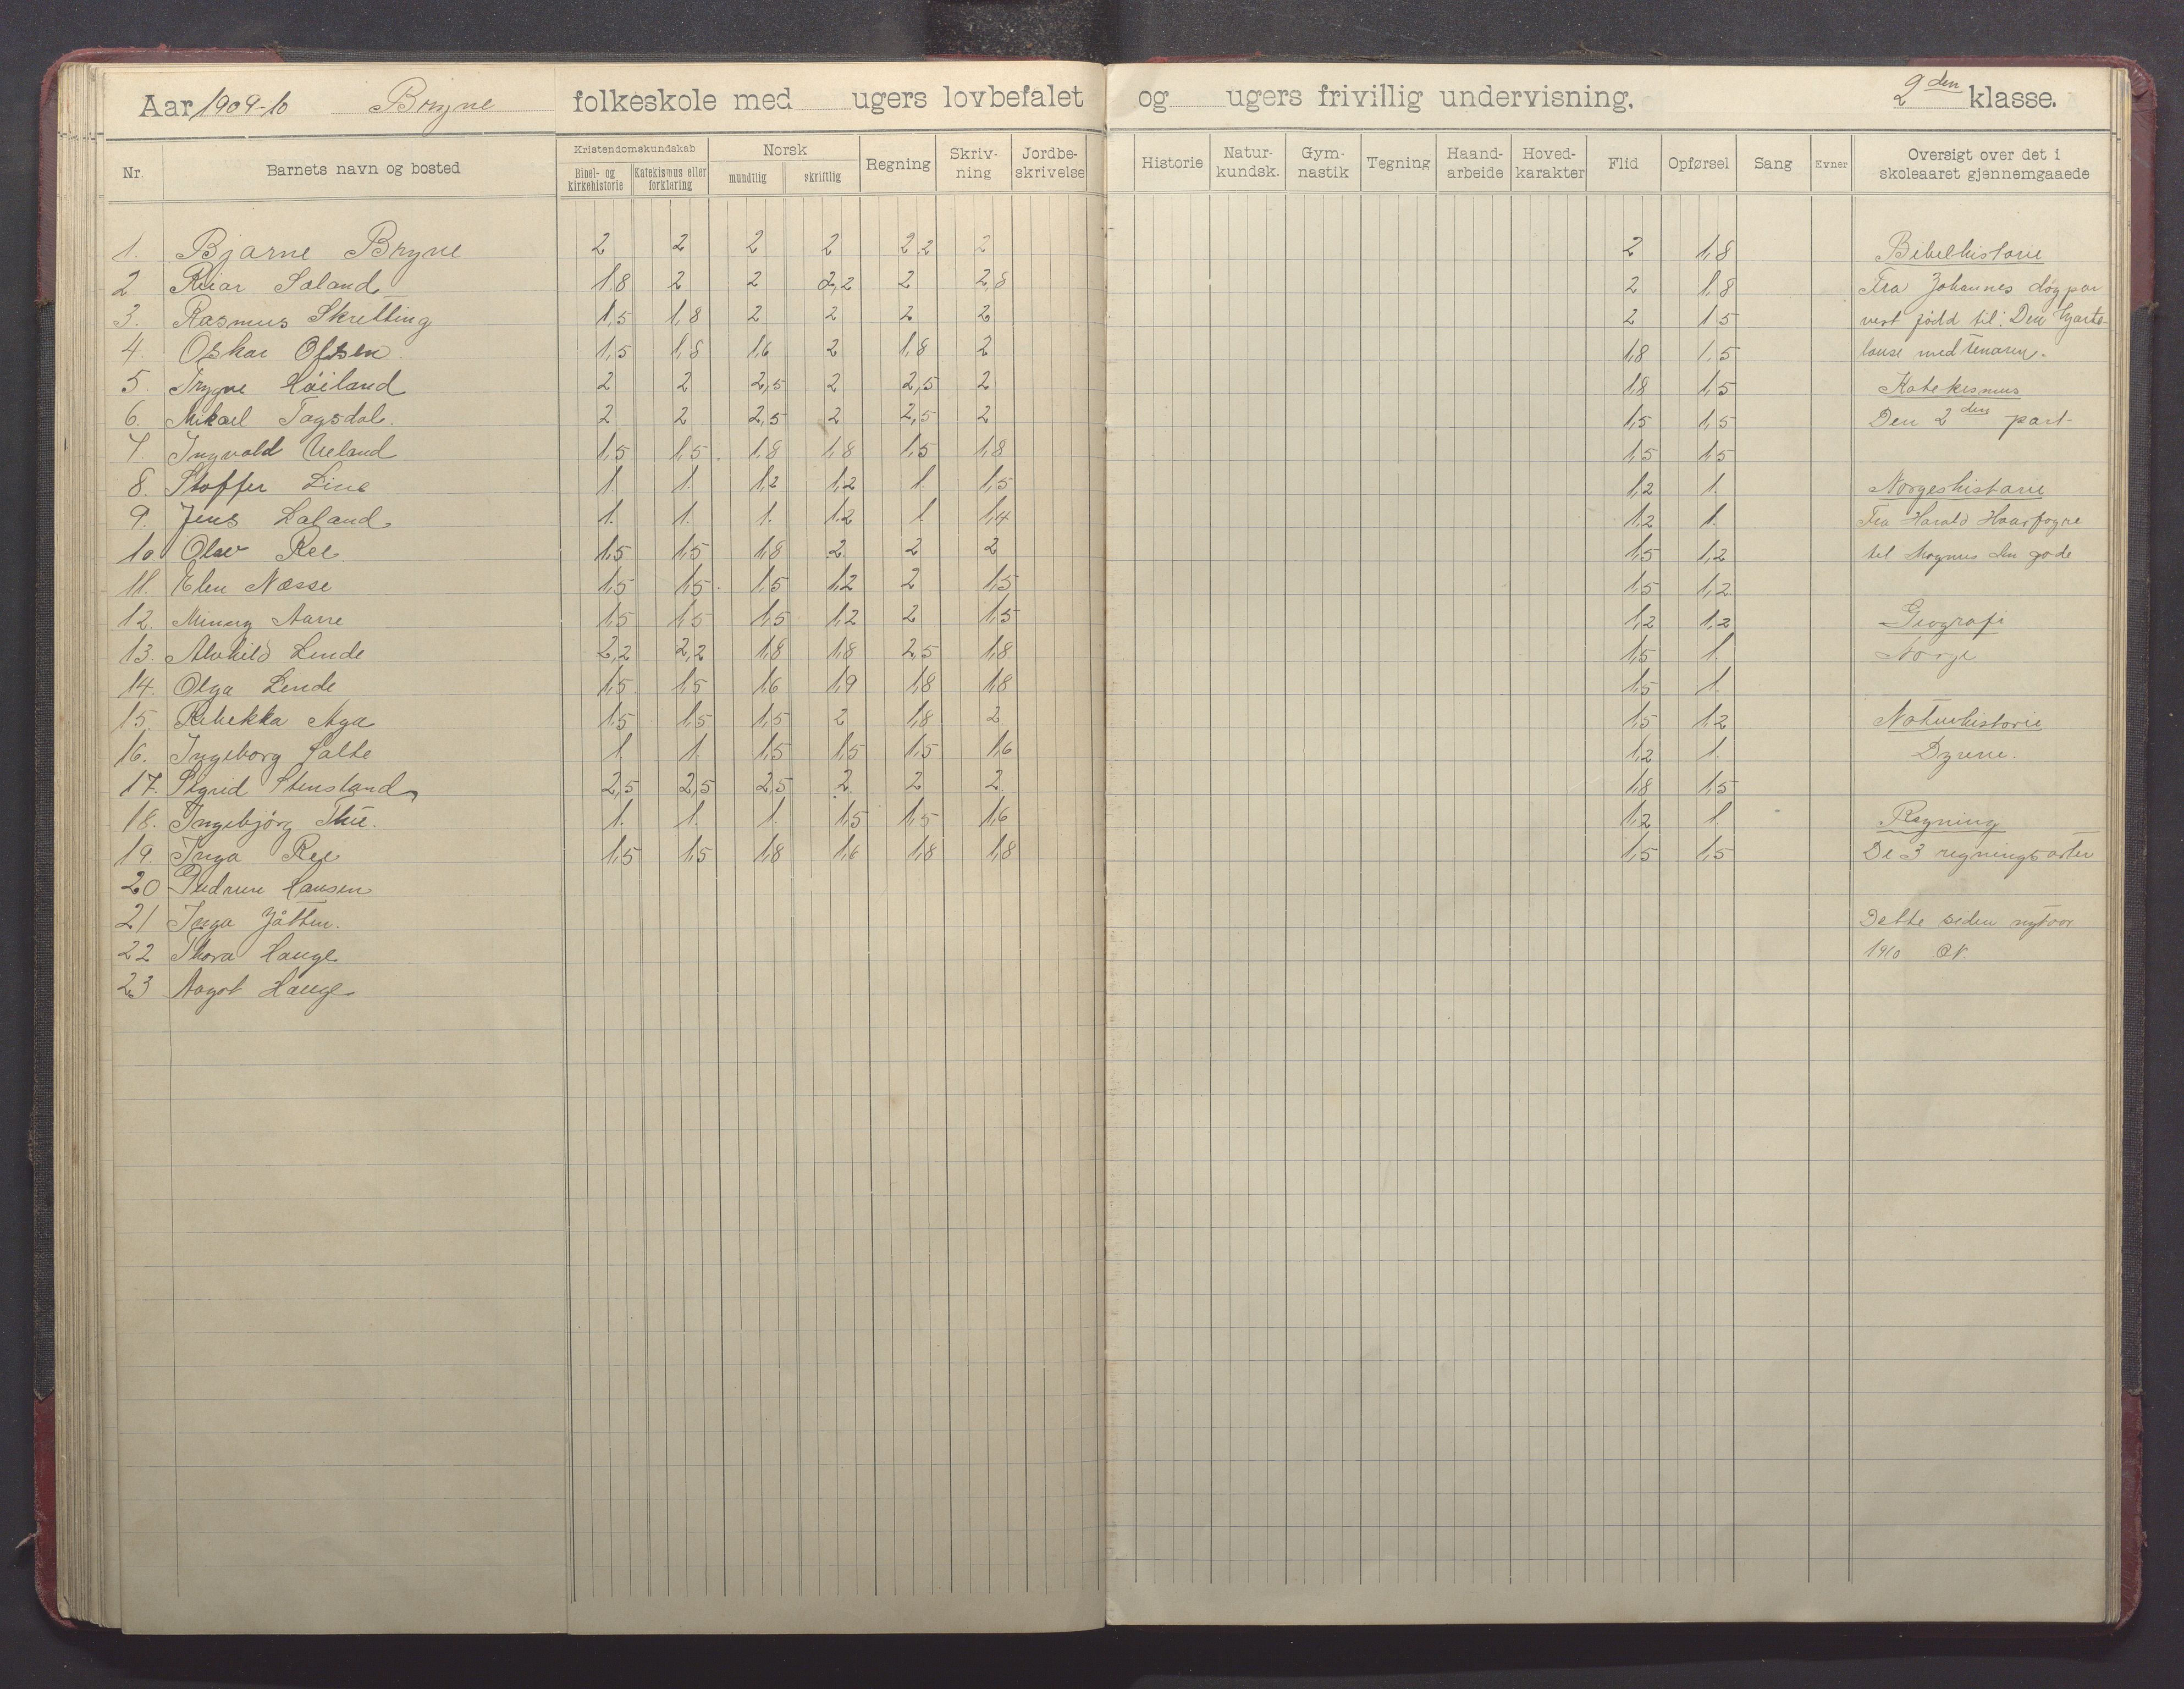 Aar 1909-10 Bryne folkeskole med ugers lovbefalet og ugers frivillig undervisning. 2den klasse.
Nr. Barnets navn og bosted Kristendomskundskab Bibel- og kirkehistorie Katekismus eller forklaring Norsk mundtlig skriftlig Regning Skrivning Jordbeskrivelse Historie Naturkundsk. Gymnastik Tegning Haandarbeide Hovedkarakter Flid Opførsel Sang Evner Oversigt over det i skoleaaret gjennemgaaede
1. Bjarne Bryne 2 2 2 2 2,2 2 2 1,8 Bibelhistorie
2 Saland 1,8 2 2 2,2 2 2,8 2 1,8 Fra Johannes døyparen
3. Rasmus Skretting 1,5 1,8 2 2 2 2 2 1,5 vert fødd til: Den hjarte-
4. Oskar Ofsen 1,5 1,8 1,6 2 1,8 2 1,8 1,5 lause medtenaren.
5. Trygve Høiland 2 2 2,5 2 2,5 2 1,8 1,5 Katekismus
6. Mikael Tagsdal. 2 2 2,5 2 2,5 2 1,5 1,5 Den 2den part.
7. Ingvald Ueland 1,5 1,5 1,8 1,8 1,5 1,8 1,5 1,5
8. Stoffer Line 1. 1. 1,2 1,2 1. 1,5 1,2 1. Norgeshistorie
9. Jens Laland 1. 1. 1. 1,2 1. 1,4 1,2 1. Fra Harald Haarfagre
10 Olav Ree 1,5 1,5 1,8 2 2 2 1,5 1,2 til Magnus den gode
11. Elen Næsse 1,5 1,5 1,5 1,2 2 1,5 1,5 1,2
12. Minny Aarre 1,5 1,5 1,5 1,2 2 1,5 1,2 1,2 Geografi
13. Alvhild Lende 2,2 2,2 1,8 1,8 2,5 1,8 1,5 1. Norge
14. Olga Lende 1,5 1,5 1,6 1,9 1,8 1,8 1,5 1.
15. Rebekka Aga 1,5 1,5 1,5 2 1,8 2 1,5 1,2 Naturhistorie
16. Ingeborg Salte 1. 1. 1,5 1,5 1,5 1,6 1,2 1. Dyrene.
17. Sigrid Stensland 2,5 2,5 2,5 2 2 2 1,8 1,5
18. Ingebjørg Thu. 1. 1. 1. 1,5 1,5 1,6 1,2 1. Regning
19. Inga Ree 1,5 1,5 1,8 1,8 1,8 1,8 1,5 1,5 De 3 regningsarter
20 Gudrun Hansen
21 Inga Jåtten. Dette siden nytaar
22 Thora Hauge 1910
23 Aagot Hauge